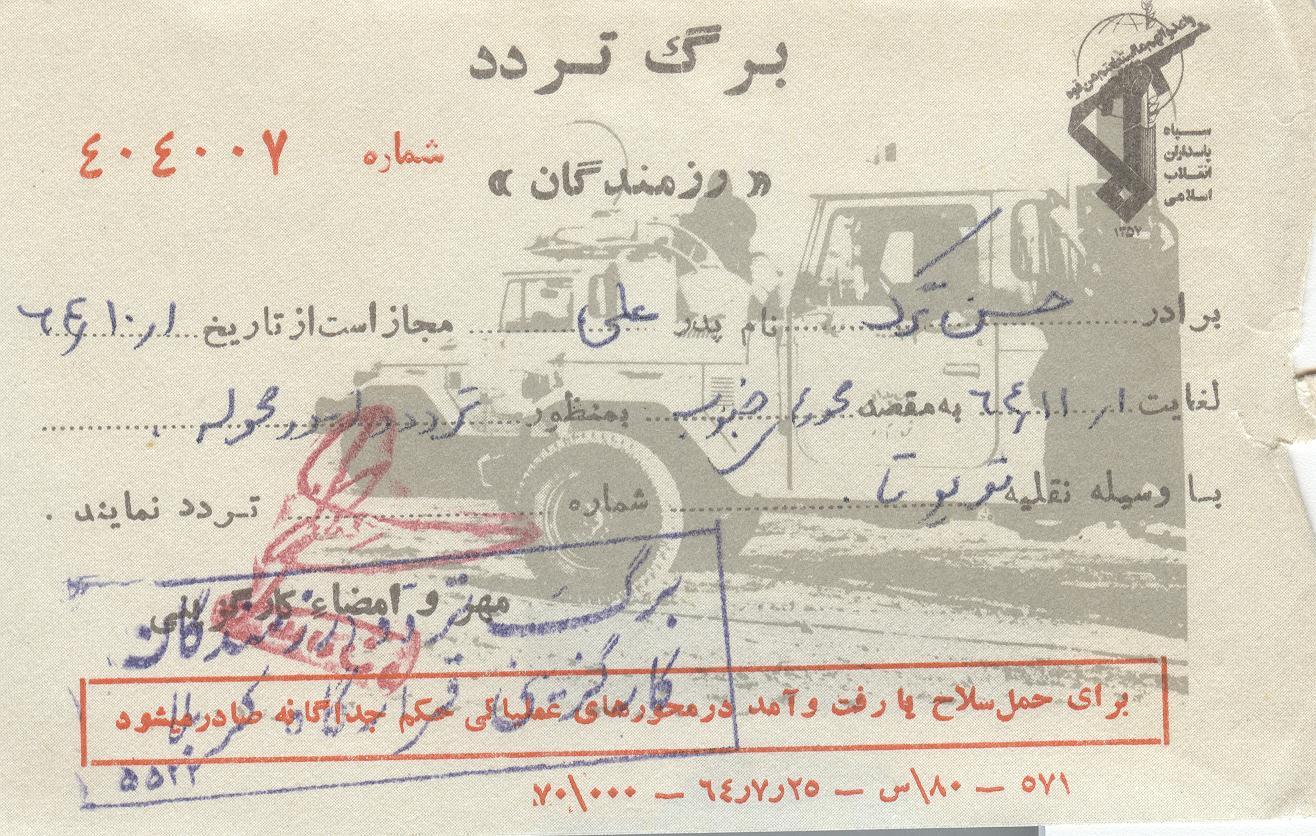 برگ تردد
واعدوا لهم ما استطعتم من قوه
سپاه
پاسداران
انقلاب
اسلامی
۱۳۵۷
شماره ٤٠٤٠٠٧
« رزمندگان »
برادر حسن ترک نام پدر علی مجاز است از تاریخ ۱ر۱۰ر۶۴
لغایت ۱ر۱۱ر۶۴ به مقصد محورهای جنوب بمنظور تردد در محوله
با وسیله نقلیه تویوتا شماره تردد نمایند .
مهر و امضاء کارگزینی
برگ تردد رزمندگان
کارگزینی قرارگاه کربلا
۵۵۲۲
برای حمل سلاح یا رفت و آمد در محورهای عملیاتی حکم جداگانه صادر میشود
۵۷۱ — ۸۰\س — ۲۵ر۷ر٦٤ — ۷۰\۰۰۰